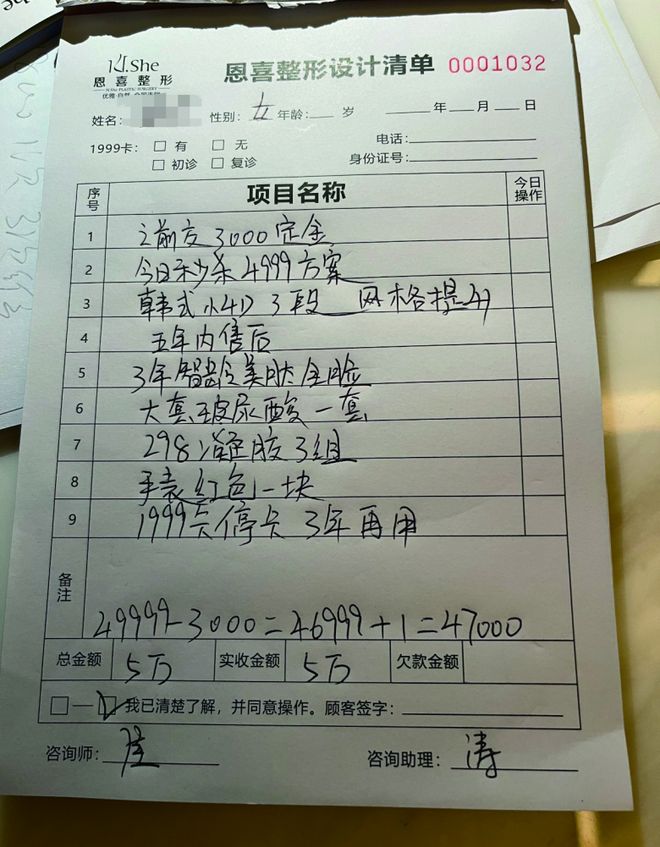 KI.She
恩喜整形
恩喜整形设计清单 0001032
姓名: 性别: 女 年龄: 岁 年 月 日
1999卡: □ 有 □ 无 电话:
□ 初诊 □ 复诊 身份证号:
序号 项目名称 今日操作
1 之前交3000定金
2 今日秒杀4999方案
3 韩式小4D 3段 风格提升
4 五年内售后
5 3年智龄美肤全脸
6 大套玻尿酸一套
7 298凝胶3组
8 手表红包一块
9 1999卡停卡3年再用
备注
49999-3000=46999+1=47000
总金额 5万 实收金额 5万 欠款金额
□—☑我已清楚了解，并同意操作。顾客签字:
咨询师: 咨询助理: 涛